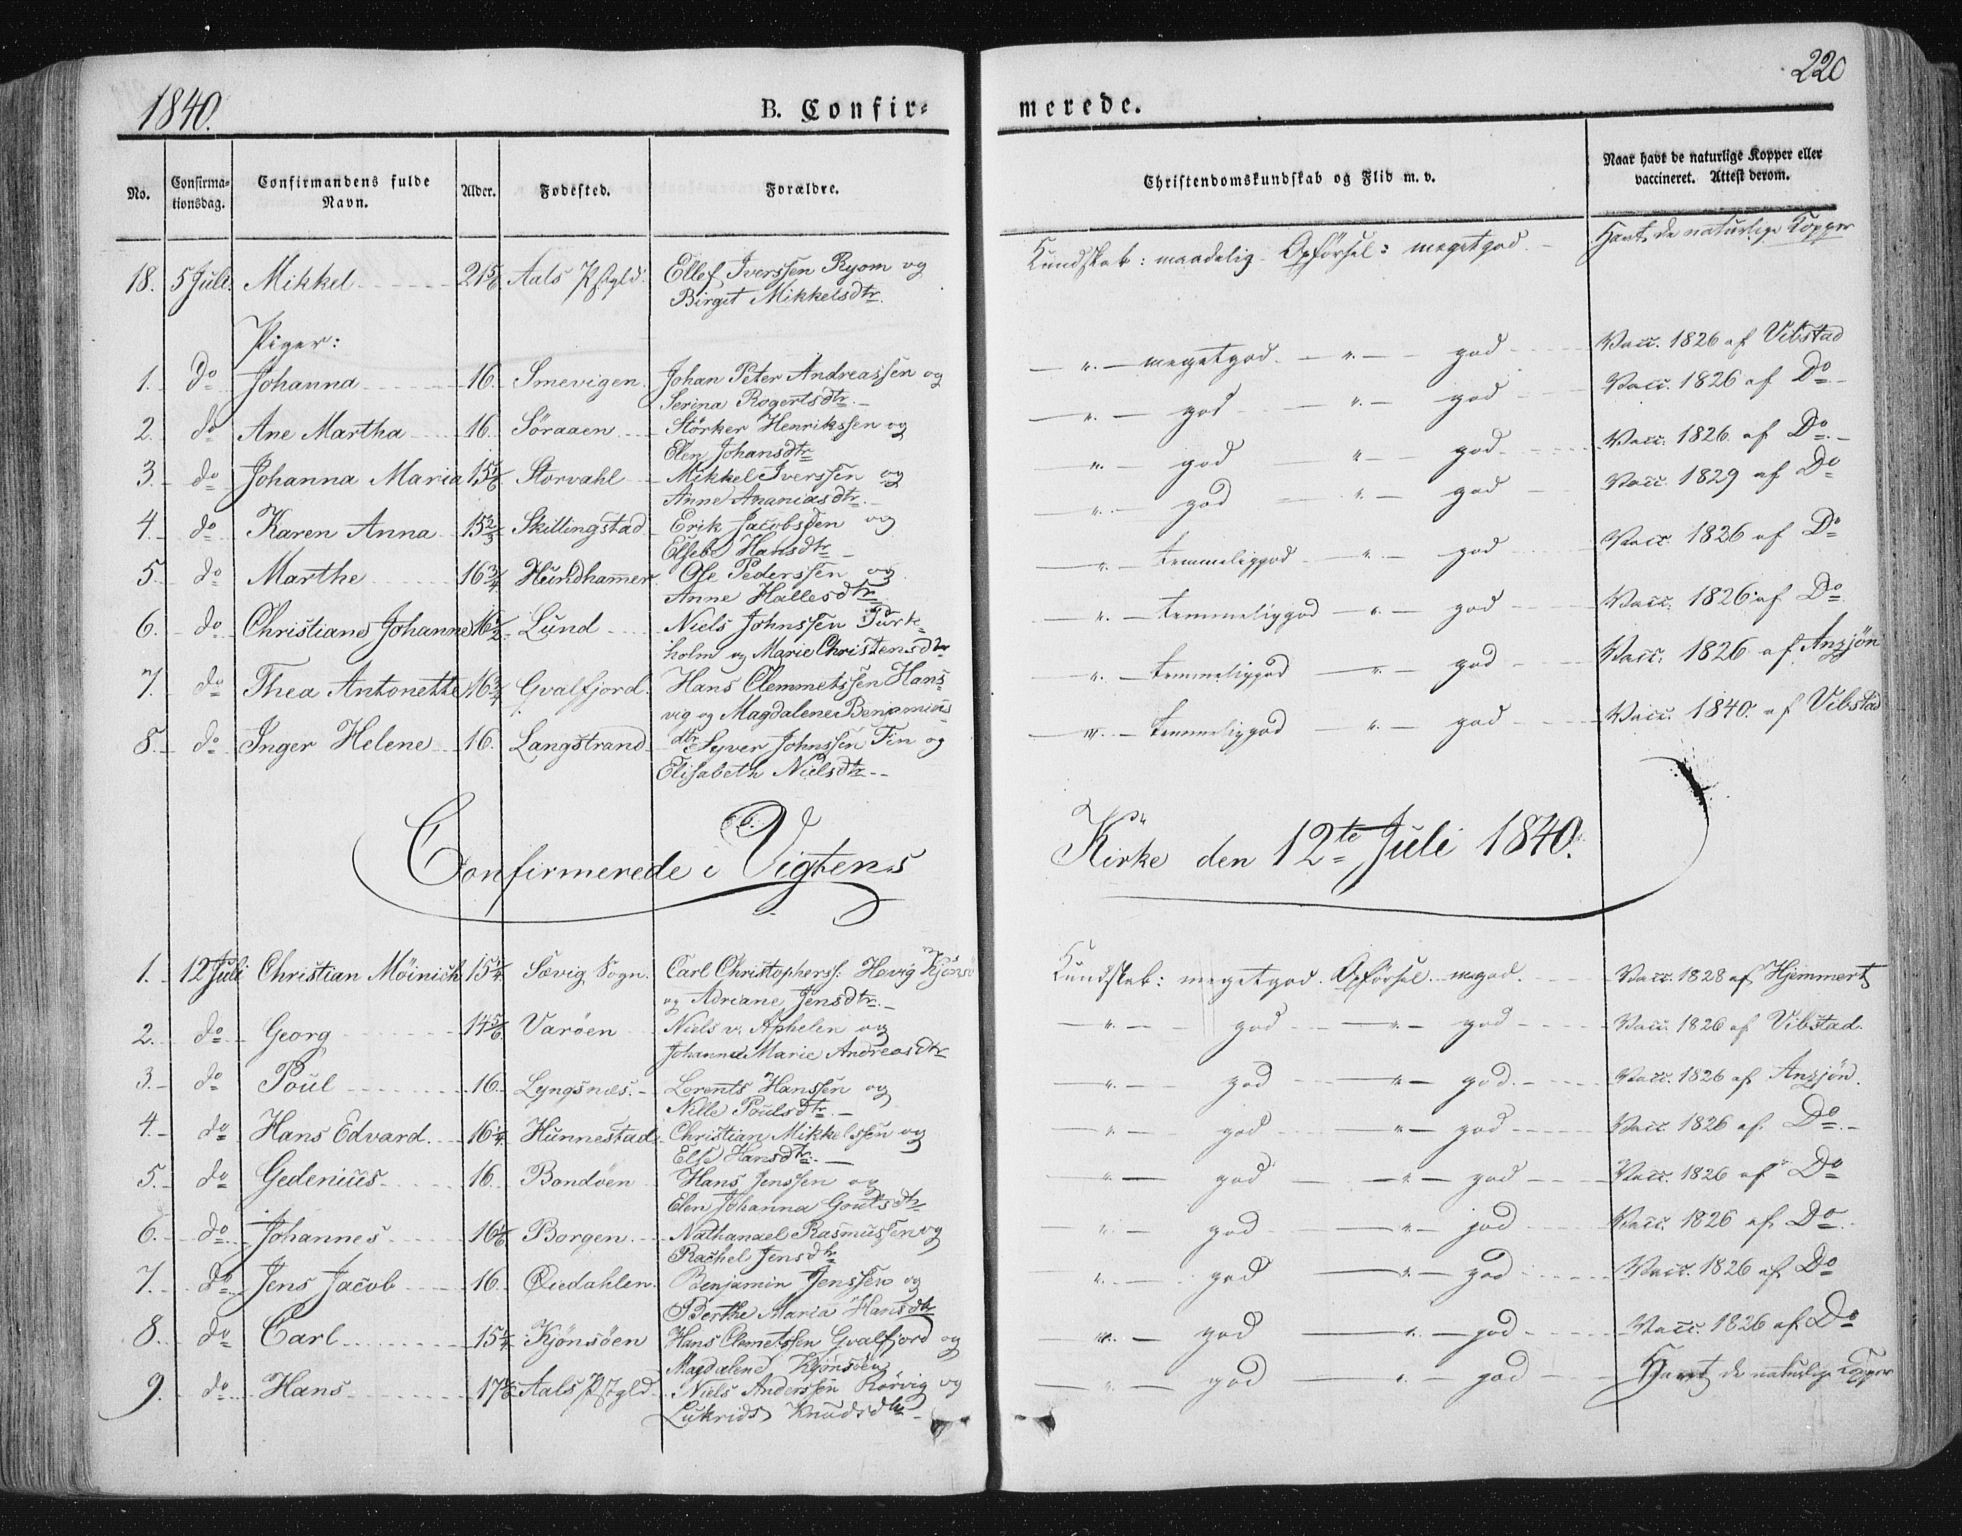 1840.
B. Confir-
merede.
220
No.
Confirma-
tionsdag.
Confirmandens fulde
Navn.
Alder.
Fødested.
Forældre.
Christendomskundskab og Flid m. v.
Naar havt de naturlige Kopper eller
vaccineret. Attest derom.
18. 5 Juli. Mikkel 21 5/6 Aals Pstgld. Ellef Iverssen Ryom og
Birgit Mikkelsdtr. Kundskab: maadelig. Opførsel: megetgod. Havt de naturlige Kopper
Piger:
1. do Johanna 16. Smevigen. Johan Peter Andreassen og
Serina Rogertsdtr. — " — megetgod. — " — god Vacc. 1826 af Vibstad
2. do Ane Martha 16. Søraaen Størker Henrikssen og
Elen Johansdtr — " — god — " — god Vacc. 1826 af Do
3. do Johanna Maria 15 5/6 Storvahl Mikkel Iverssen og
Anne Ananiasdtr. " — god — " — god Vacc. 1826 af Do
4. do Karen Anna 15 2/3 Skillingstad Erik Jacobssen og
Elsebe Hansdtr " — god — " — god Vacc. 1829 af Do
5. do Marthe 16 3/4 Hundhammer. Ole Pederssen og
Anne Hallesdtr — " — temmeliggod — " — god Vacc. 1826 af Do
6. do Christiane Johanne 16 1/2 Lund Niels Johnssen Turk-
holm og Marie Christensdtr — " — temmeliggod — " — god Vacc. 1826 af Do
7. do Thea Antonette 16 3/4 Gvalfjord. Hans Clemmetssen Hans-
vig og Magdalene Benjamins- — " — temmeliggod — " — god Vacc. 1826 af Anzjøn
8. do Inger Helene 16. Langstrand dtr. Syver Johnssen Fin og
Elisabeth Nielsdtr — " — temmeliggod — " — god Vacc. 1840. af Vibstad
Confirmerede i Vigtens Kirke den 12te Juli 1840.
1. 12 Juli Christian Möinich 15 1/4 Sævig Sogn. Carl Christophers: Hevig Kjønsø
og Adriane Jensdtr. Kundskab: megetgod. Opførsel. mgod. Vacc. 1828 af Hjemmert
2. do Georg 14 5/6 Varøen Niels v. Aphelen og
Johanna Marie Andreasdtr — " — god — " — god Vacc. 1826 af Vibstad.
3. do Poul 16. Lyngsnæs. Lorents Hanssen og
Nille Poulsdtr. — " — god — " — god. Vacc. 1826 af Anzjøn.
4. do Hans Edvard. 16 1/4 Hunnestad Christian Mikkelssen og
Else Hansdtr. — " — god — " — god Vacc. 1826 af Do
5. do Gedenius 16. Bondøen Hans Jenssen og
Elen Johanna Goutsdtr — " — god — " — god Vacc. 1826 af Do
6. do Johannes 16 1/6 Borgen. Nathanael Rasmussen og
Rachel Jensdtr — " — god — " — god Vacc. 1826 af Do
7. do Jens Jacob 16. Qvedahlen. Benjamin Jenssen og
Berthe Maria Hansdtr " — god — " — god Vacc. 1826 af Do
8. do Carl 15 1/4 Kjønsøen Hans Clemetssen Gvalfjord og
Magdalene Kjønsøen — " — god — " — god Vacc. 1826 af Do
9. do Hans 17 Aals Pstgld Niels Anderssen Rörvig og
Lukrids Knudsdtr. — " — god — " — god Havt de naturlige Kopper